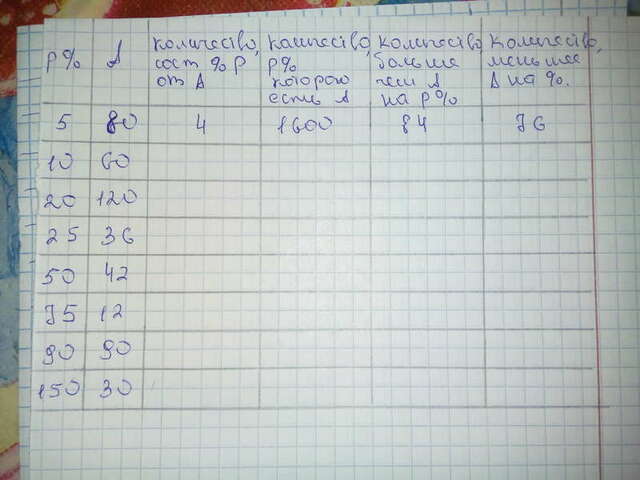 P% A количество, сост % P от A количество, P% которого есть A количество, больше чем A на P% количество, меньшее A на %.
5 80 4 1600 84 76
10 60
20 120
25 36
50 42
75 12
90 90
150 30